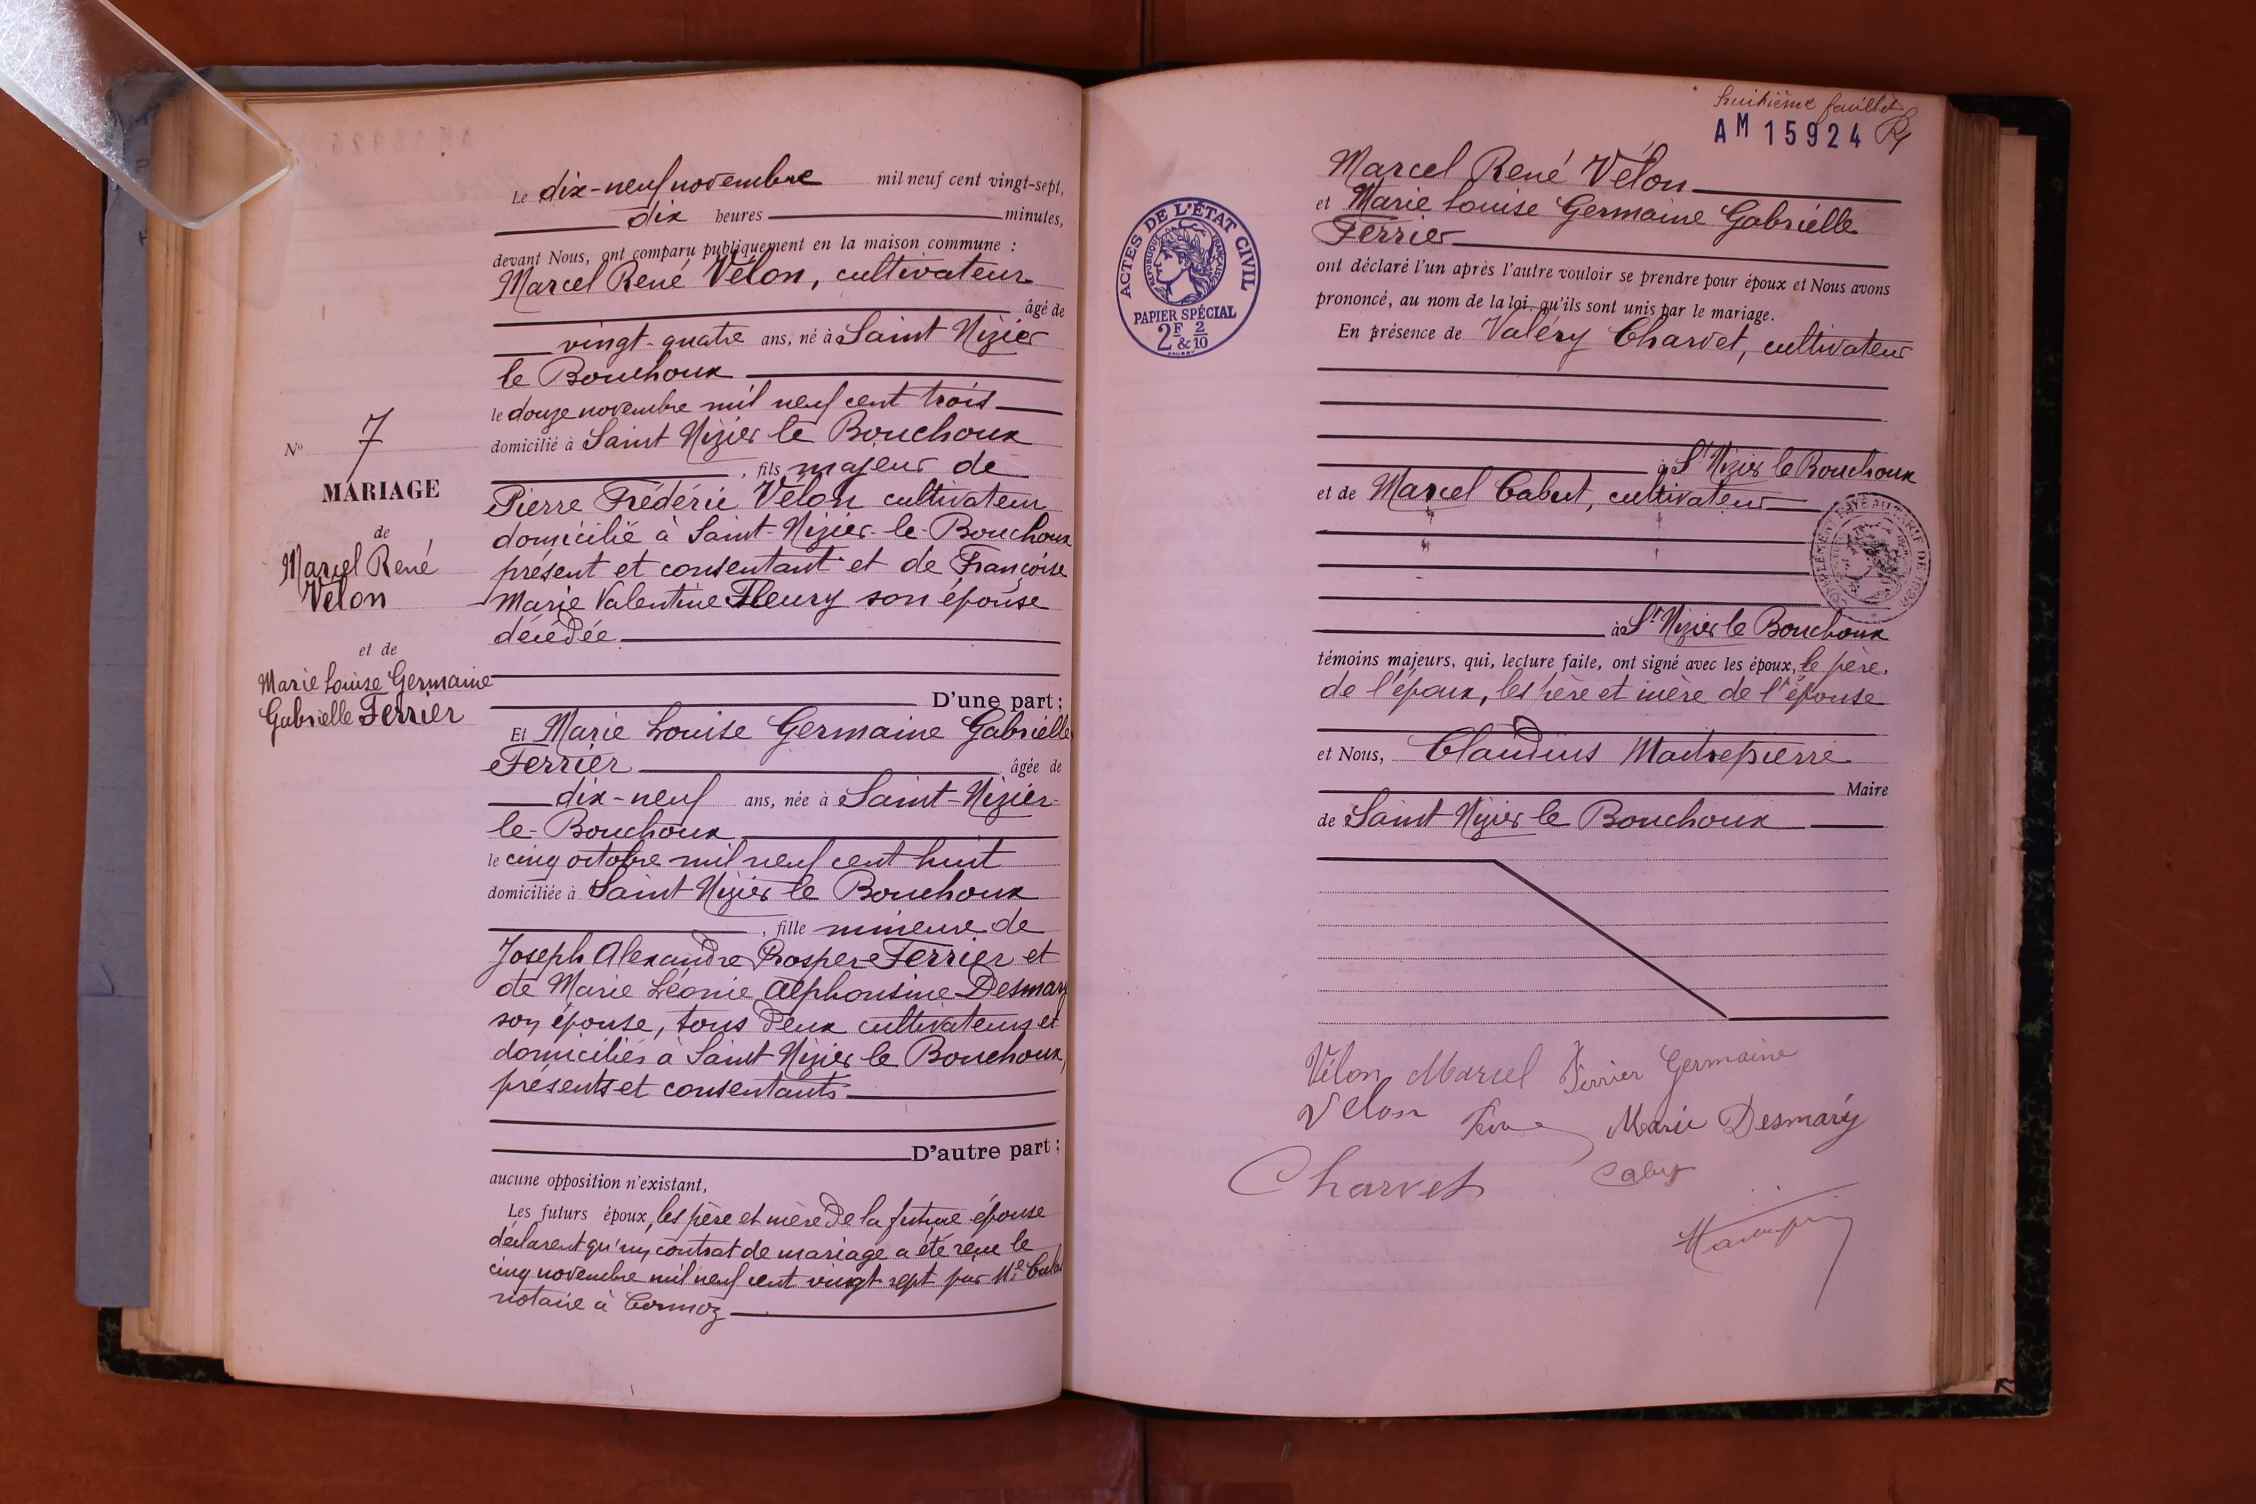 Le dix-neuf novembre mil neuf cent vingt-sept,
dix heures minutes,
devant Nous, ont comparu publiquement en la maison commune :
Marcel René Vélon, cultivateur
âgé de
vingt-quatre ans, né à Saint Nizier
le Bouchoux
le douze novembre mil neuf cent trois
domicilié à Saint Nizier le Bouchoux
, fils majeur de
Pierre Frédéric Vélon cultivateur
domicilié à Saint-Nizier-le-Bouchoux
présent et consentant et de Françoise
Marie Valentine Fleury son épouse
décédée
D'une part ;
Et Marie Louise Germaine Gabrielle
Ferrier âgée de
dix-neuf ans, née à Saint-Nizier-
le-Bouchoux
le cinq octobre mil neuf cent huit
domiciliée à Saint Nizier le Bouchoux
, fille mineure de
Joseph Alexandre Prosper Ferrier et
de Marie Léonie Alphonsine Desmary
son épouse, tous deux cultivateurs et
domiciliés à Saint Nizier le Bouchoux,
présents et consentants
D'autre part ;
aucune opposition n'existant,
Les futurs époux, les père et mère de la future épouse
déclarent qu'un contrat de mariage a été reçu le
cinq novembre mil neuf cent vingt sept par Me
notaire à Cormoz
No 7
MARIAGE
de
Marcel René
Vélon
et de
Marie Louise Germaine
Gabrielle Ferrier
huitième feuillet
AM 15924
ACTES DE L'ÉTAT CIVIL
RÉPUBLIQUE FRANÇAISE
PAPIER SPÉCIAL
2F & 2/10
Marcel René Vélon
et Marie Louise Germaine Gabrielle
Ferrier
ont déclaré l'un après l'autre vouloir se prendre pour époux et Nous avons
prononcé, au nom de la loi, qu'ils sont unis par le mariage.
En présence de Valéry Charvet, cultivateur
à St Nizier le Bouchoux
et de Marcel Cabut, cultivateur
à St Nizier le Bouchoux
témoins majeurs, qui, lecture faite, ont signé avec les époux, le père
de l'époux, les père et mère de l'épouse
et Nous, Claudius Maitrepierre
Maire
de Saint Nizier le Bouchoux
Vélon Marcel Ferrier Germaine
Velon Marie Desmary
Charvet Cabut